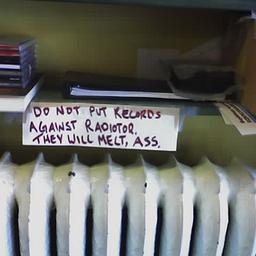 DO NOT PUT RECORDS
AGAINST RADIOTOR.
THEY WILL MELT, ASS.